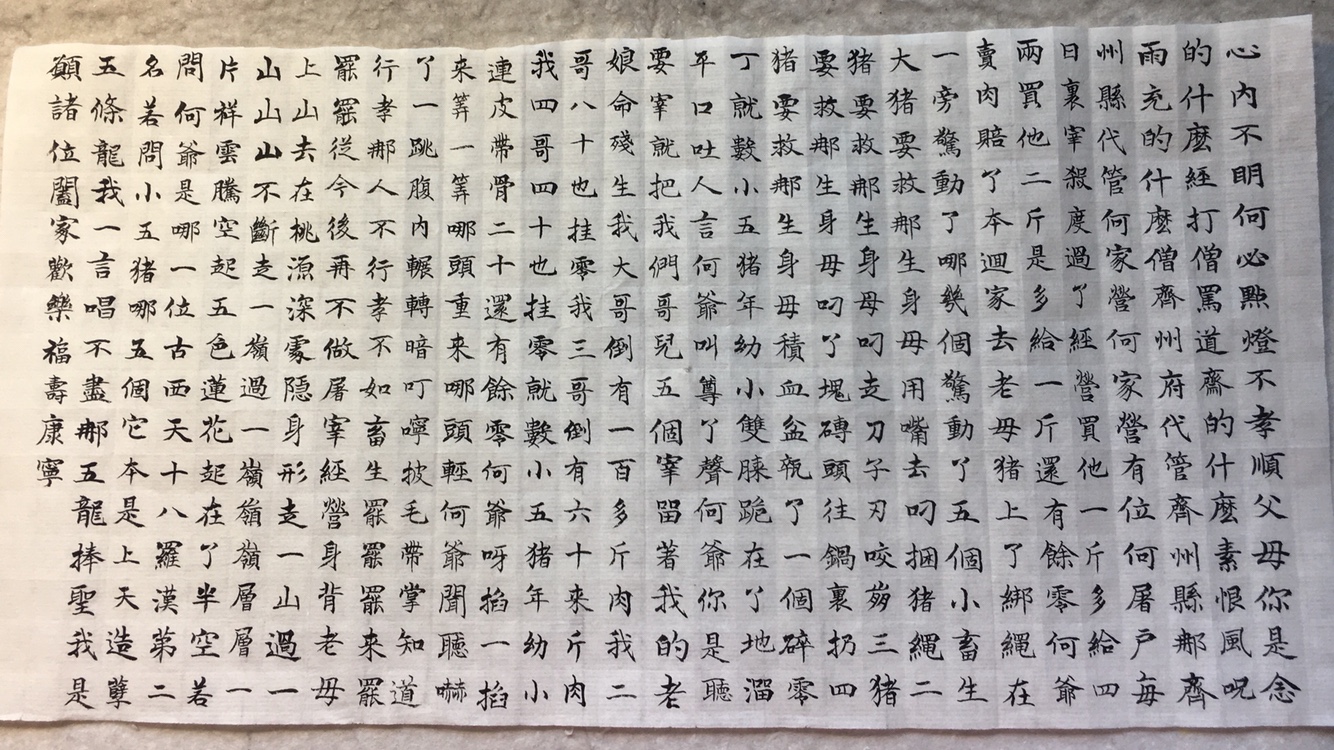 心内不明何必點燈不孝順父母你是念
的什麽經打僧罵道齋的什麽素恨風呪
雨充的什麽僧齊州府代管齊州縣那齊
州縣代管何家營何家營有位何屠户每
日裏宰殺度過了經營買他一斤多給四
兩買他二斤是多給一斤還有餘零何爺
賣肉賠了本迴家去老母猪上了綁繩在
一旁驚動了哪幾個驚動了五個小畜生
大猪要救那生身母用嘴去叼捆猪繩二
猪要救那生身母叼走刀子刃咬崩三猪
要救那生身母叼了塊磚頭往鍋裏扔四
猪要救那生身母積血盆瓶了一個碎零
丁就數小五猪年幼小雙膝跪在了地溜
平口吐人言何爺叫尊了聲何爺你是聽
要宰就把我們哥兒五個宰留著我的老
娘命殘生我大哥倒有一百多斤肉我二
哥八十也挂零我三哥倒有六十來斤肉
我四哥四十也挂零就數小五猪年幼小
連皮帶骨二十還有餘零何爺呀掐一掐
來筭一筭哪頭重來哪頭輕何爺聞聽嚇
了一跳腹内輾轉暗叮嚀披毛帶掌知道
行孝那人不行孝不如畜生罷罷罷來罷
罷罷從今後再不做屠宰經營身背老母
上山去在桃源深處隱身形走一山過一
山山山不斷走一嶺過一嶺嶺嶺層層一
片祥雲騰空起五色蓮花起在了半空若
問何爺是哪一位古西天十八羅漢第二
名若問小五猪哪五個它本是上天造孽
五條龍我一言唱不盡那五龍捧聖我是
願諸位闔家歡樂福壽康寧